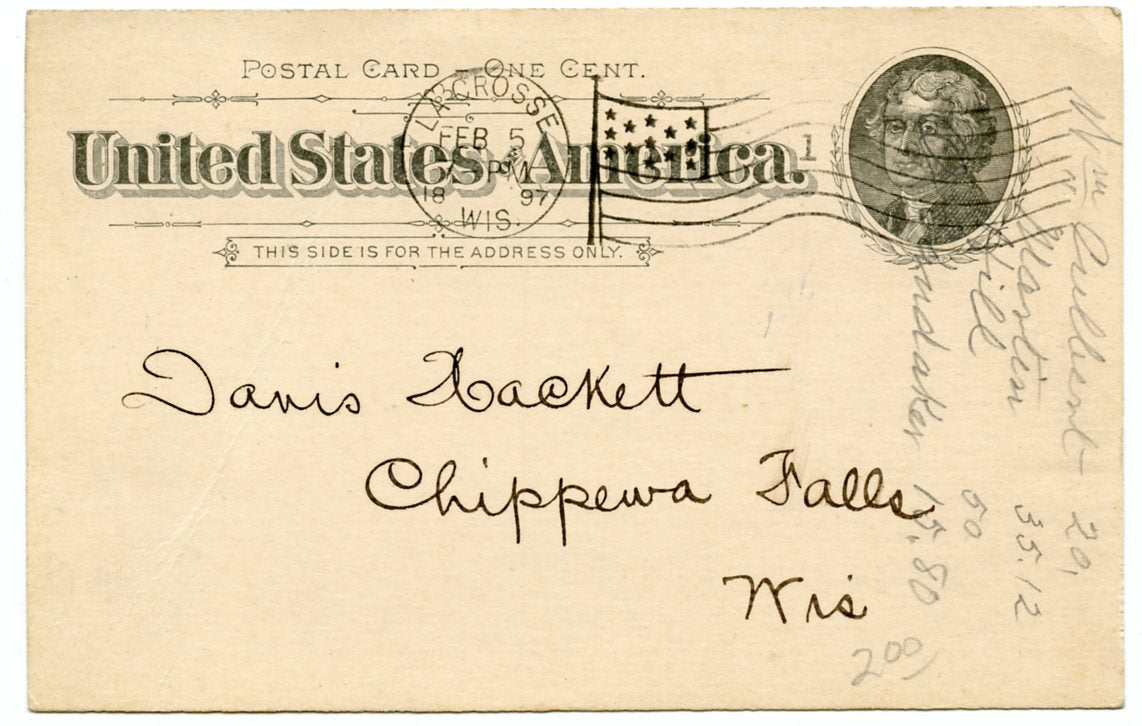 POSTAL CARD – ONE CENT.
United States America.
LA CROSSE
FEB 5
PM
18 97
WIS.
1
THIS SIDE IS FOR THE ADDRESS ONLY.
Davis Hackett
Chippewa Falls
Wis
Wm 20,
Martin 35.12
Hill 50
15.80
200